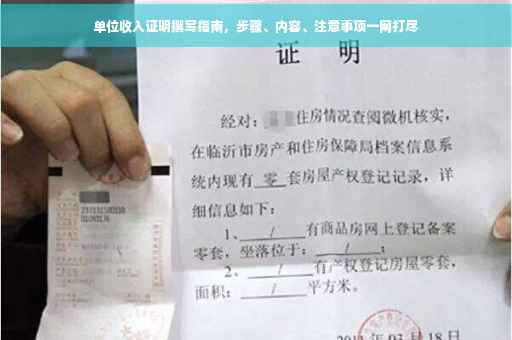 单位收入证明撰写指南，步骤、内容、注意事项一网打尽
证 明
经对：住房情况查阅微机核实，
在临沂市房产和住房保障局档案信息系
统内现有 零 套房屋产权登记记录，详
细信息如下：
1、 / 有商品房网上登记备案
零套，坐落位于： / ；
2、 / 有产权登记房屋零套，
面积： / 平方米。